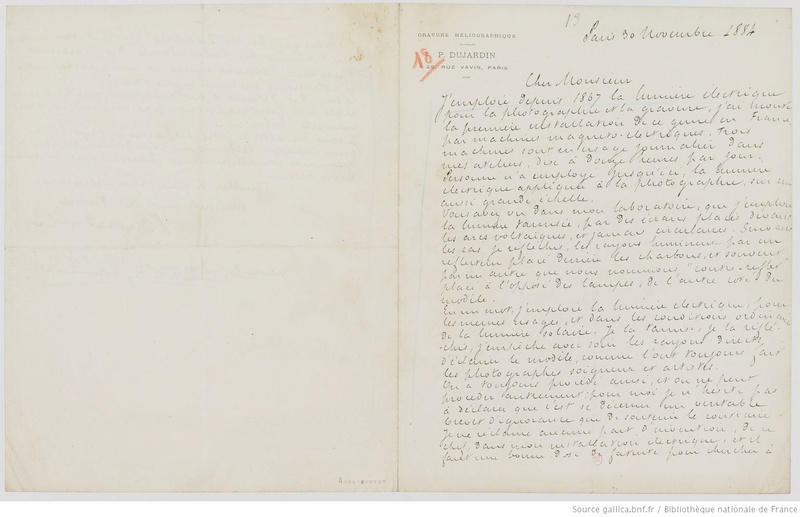 13
Paris 30 Novembre 1884
GRAVURE HÉLIOGRAPHIQUE
18
P. DUJARDIN
28, RUE VAVIN, PARIS
Cher Monsieur
J'emploie depuis 1867 la lumière electrique
pour la photographie et la gravure, j'ai monté
la première installation de ce genre en France
par machines magneto-electriques. Trois
machines sont en usage journalier dans
mes ateliers, dix à Douze heures par jour.
Personne n'a employé jusqu'ici, la lumière
electrique appliquée à la photographie, sur une
aussi grande échelle.
Vous avez vu dans mon laboratoire, que j'emploie
la lumière tamisée, par des écrans placés devant
les arcs voltaïques, et jamais
les cas je reflechis les rayons lumineux par un
reflecteur placé derrière les charbons, et souvent
par un autre que nous nommons contre-reflet
placé à l'opposé des lampes, de l'autre coté du
modèle.
En un mot, j'emploie la lumière electrique, pour
les mêmes usages, et dans les conditions ordinaires
de la lumière solaire. Je la tamise, je la réflé-
chis, j'empêche avec soin les rayons directs,
d'éclairer le modèle, comme l'ont toujours fait
les photographes soigneux et artistes.
On a toujours procédé ainsi, et on ne peut
procéder autrement; pour moi je n'hésite pas
à déclarer que c'est se décerner un veritable
brevet d'ignorance que de soutenir le contraire.
Je ne réclame aucune part d'invention, de ce
chef, dans mon installation electrique; et il
faut une bonne dose de pour chercher à
Source gallica.bnf.fr / Bibliothèque nationale de France